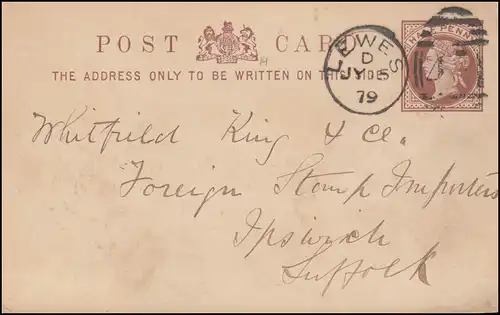 POST CARD
THE ADDRESS ONLY TO BE WRITTEN ON THIS SIDE
LEWES
D
JY 5
79
Whitfield King & Co.
Foreign Stamp Importers
Ipswich
Suffolk